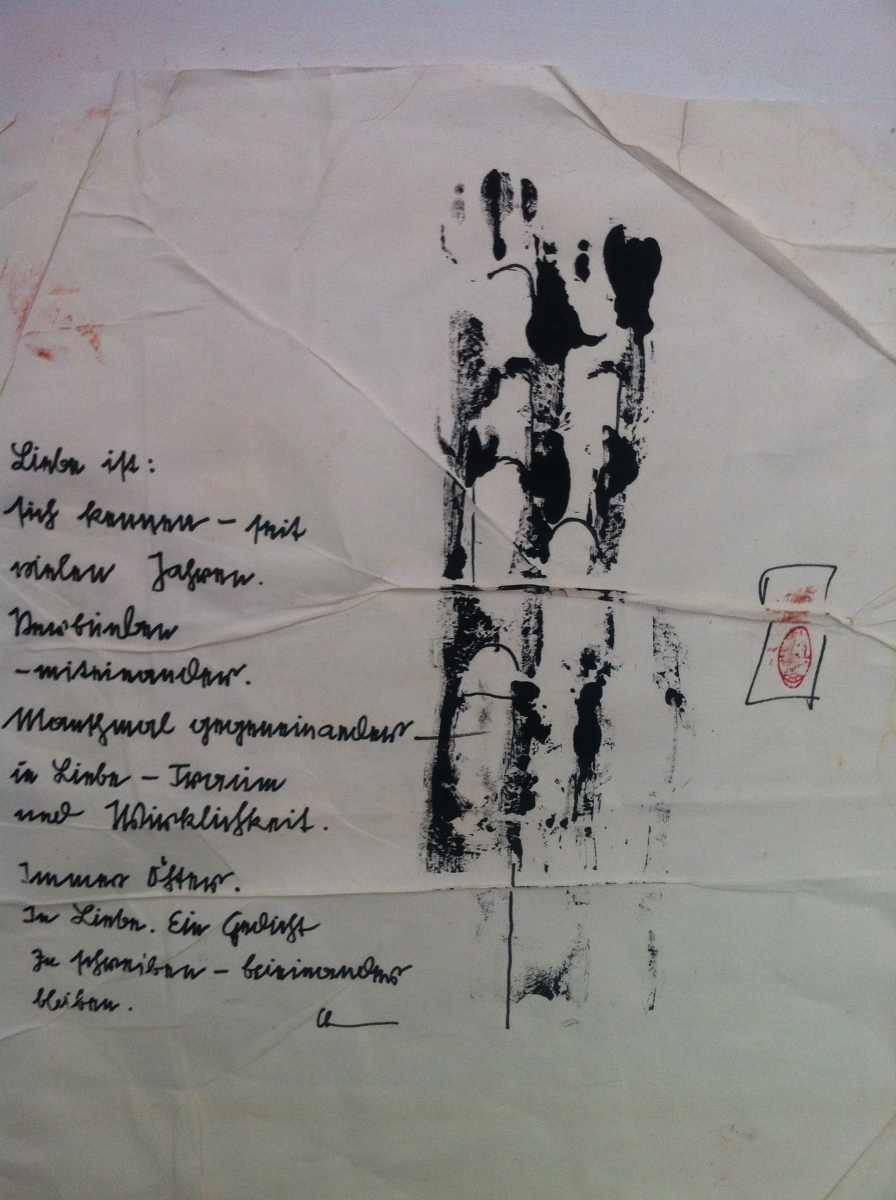 Liebe ist:
sich kennen – seit
vielen Jahren.
Verbünden
– miteinander.
Manchmal gegeneinander –
in Liebe – Traum
und Wirklichkeit.
Immer öfter.
In Liebe. Ein Gedicht
zu schreiben – beieinander
bleiben.